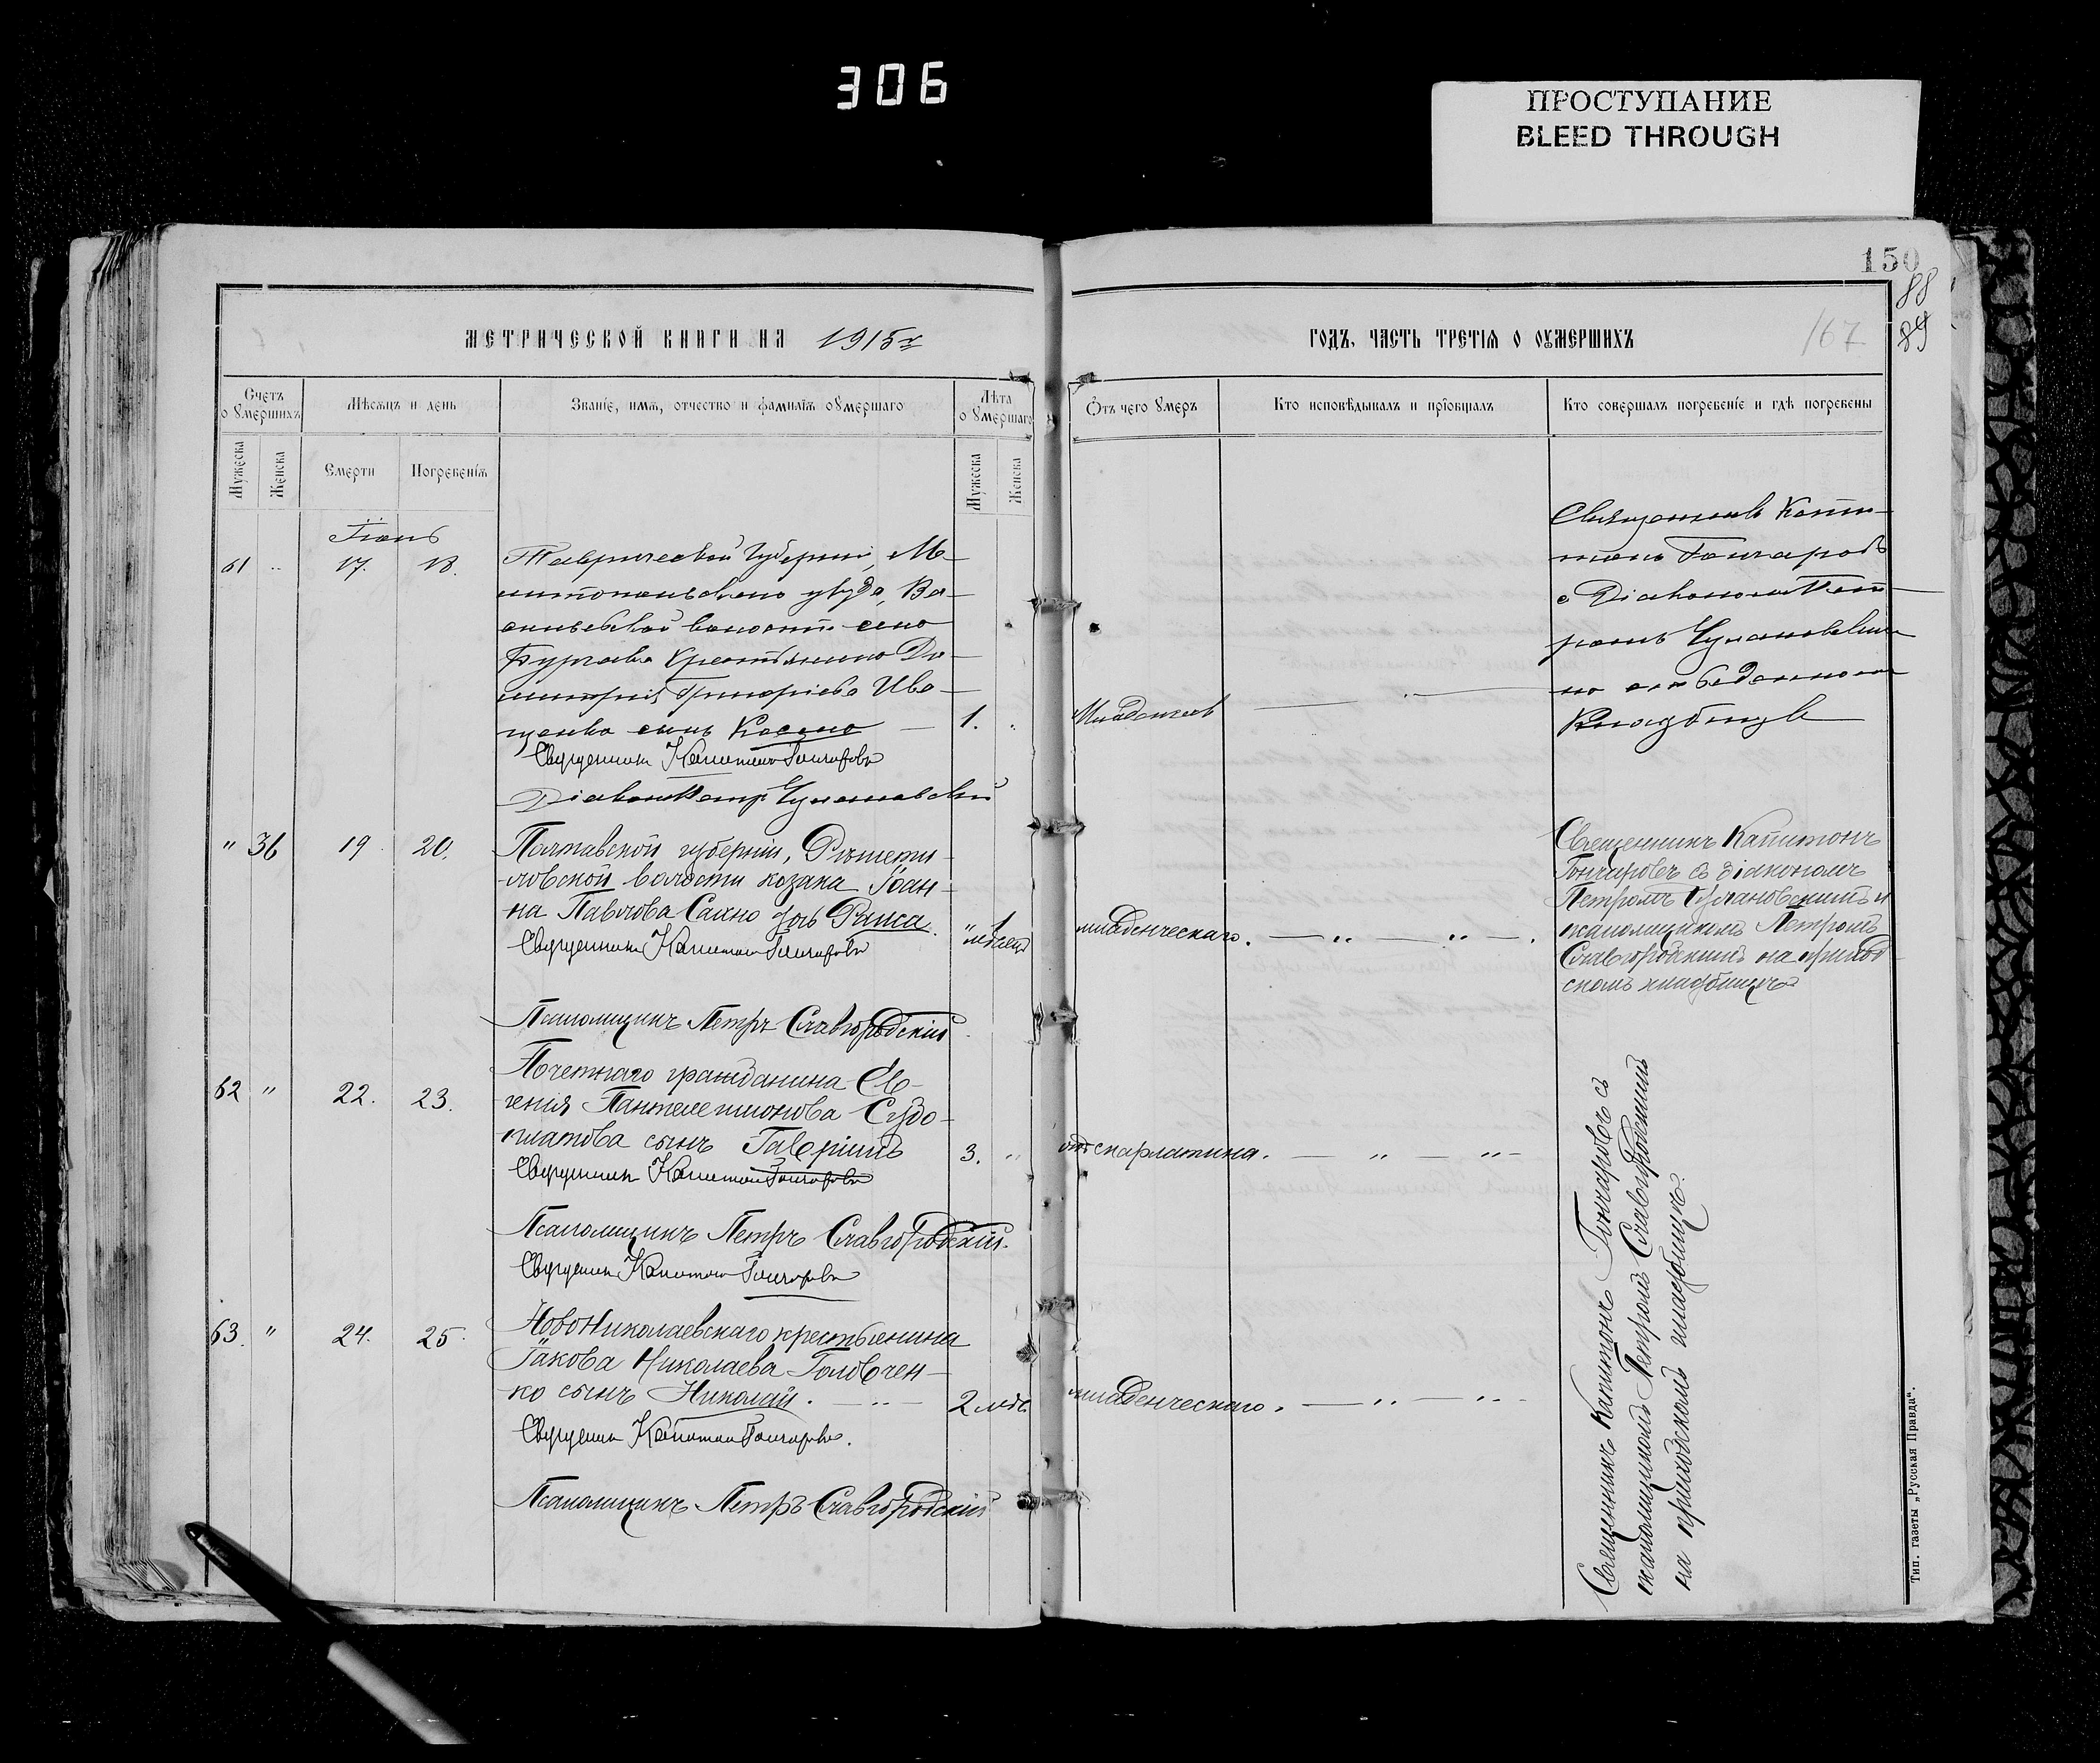 306
ПРОСТУПАНИЕ
BLEED THROUGH
150
88
89
167
МЕТРИЧЕСКОЙ КНИГИ НА 1915 г
ГОДЪ, ЧАСТЬ ТРЕТІЯ О ОУМЕРШИХЪ
Счетъ оумершихъ
Мѣсяцъ и день
Званіе, имя, отчество и фамилія оумершаго
Лѣта оумершаго
Отъ чего умеръ
Кто исповѣдывалъ и пріобщалъ
Кто совершалъ погребеніе и гдѣ погребены
Мужеска
Женска
Смерти
Погребенія
Мужеска
Женска
Іюнь
61 " 17. 18.
Таврической Губерніи, Ме-
литопольскаго уѣзда, Ва-
сильевской волости село
Бурчака Крестьянина Ди-
митрія Григоріева Ива-
щенко сынъ Косма — 1.
Священникъ Капитонъ Гончаровъ
Діаконъ Петръ Чулановскій
Младенческ
Священникъ Капи-
тонъ Гончаровъ
с Діакономъ Пет-
ромъ Чулановским
на
Кладбищѣ
" 36 19 20.
Полтавской губерніи, Рѣшети-
ловской волости козака Іоан-
на Павлова Сахно дочь Раиса.
" 1 мѣсяц
Священникъ Капитонъ Гончаровъ
Псаломщикъ Петръ Славгородскій
младенческаго. — " — " — .
Священникъ Капитонъ
Гончаровъ съ діакономъ
Петромъ Чулановскимъ и
псаломщикомъ Петромъ
Славгородскимъ на приход-
скомъ кладбищѣ
62 " 22. 23.
Почетнаго гражданина Ев-
генія Пантелеимонова Судо-
платова сынъ Гавріилъ
3. "
Священникъ Капитонъ Гончаровъ
Псаломщикъ Петръ Славгородскій.
Священникъ Капитонъ Гончаровъ
отъ скарлатина. — " — " —
63. " 24. 25.
НовоНиколаевскаго крестьянина
Іакова Николаева Головчен-
ко сынъ Николай. — " —
2 лѣтъ
Священникъ Капитонъ Гончаровъ.
Псаломщикъ Петръ Славгородскій
младенческаго. — " — " —
Священникъ Капитонъ Гончаровъ съ
псаломщикомъ Петромъ Славгородскимъ
на приходскомъ кладбищѣ.
Тип. газеты „Русская Правда“.